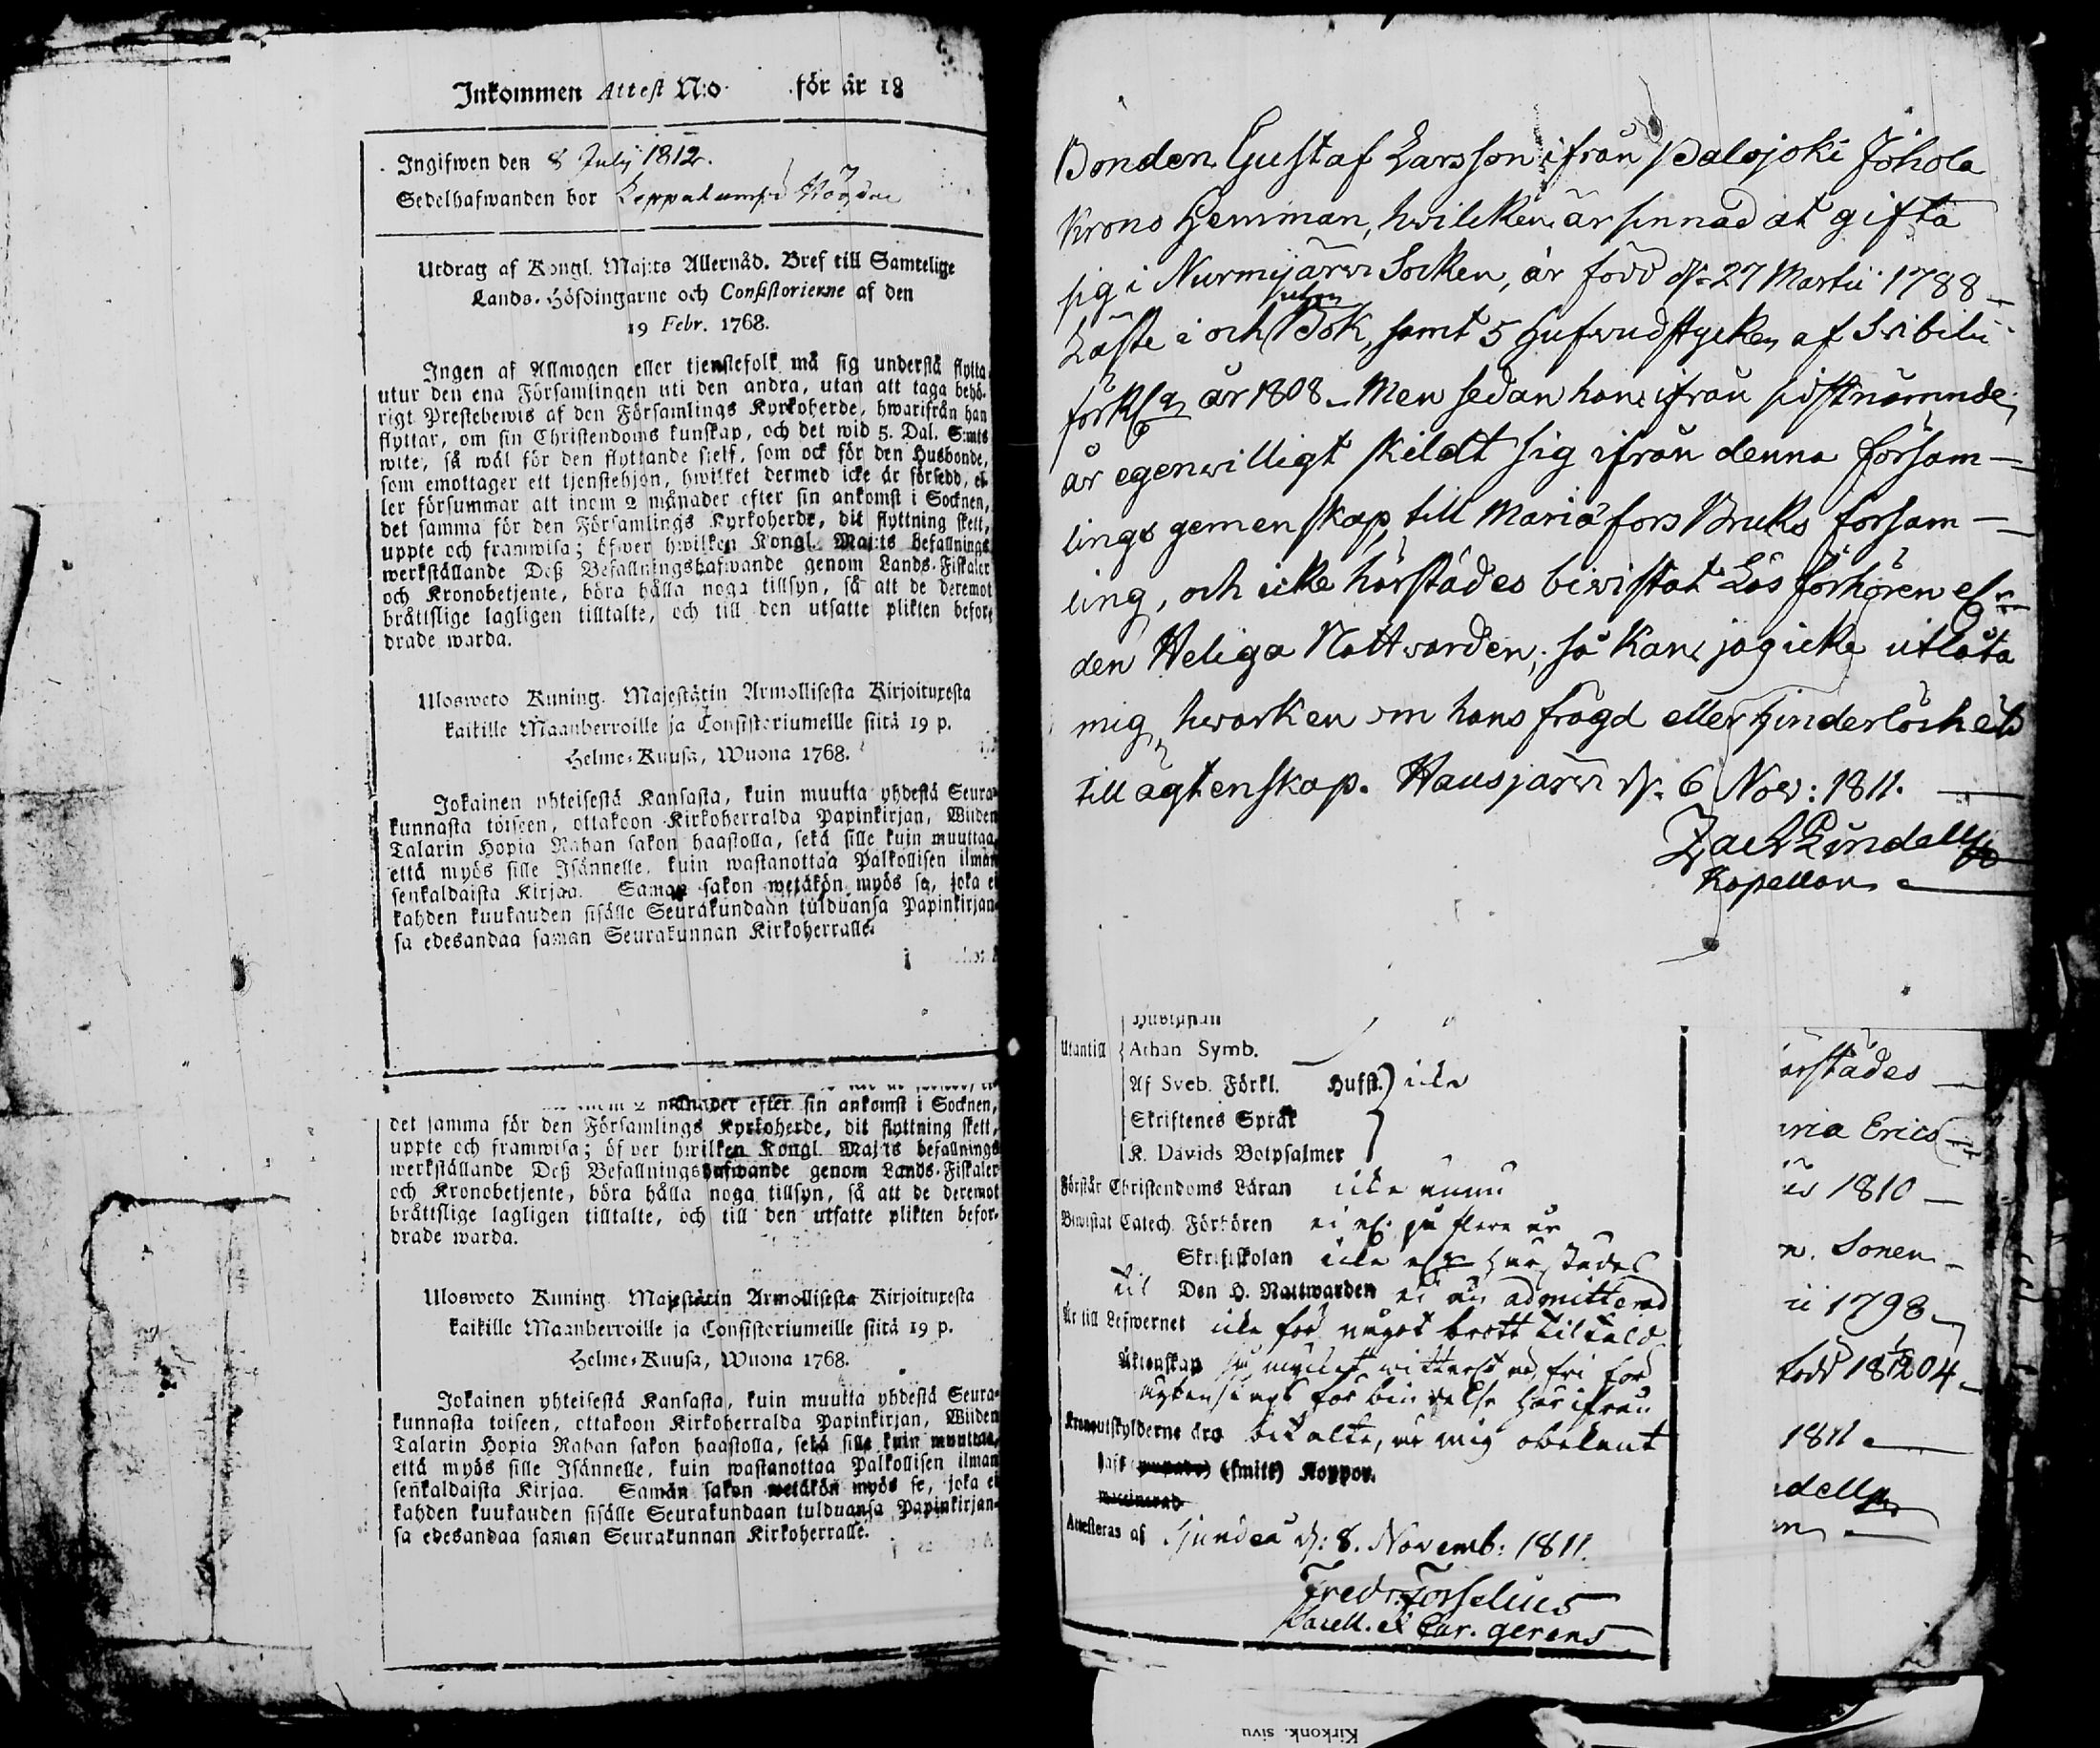 Inkommen Attest N:o för år 18
Ingifwen den 8 July 1812.
Sedelhafwanden bor
Utdrag af Kongl. Maj:ts Allernåd. Bref till Samtelige
Lands-Höfdingarne och Consistorierne af den
19 Febr. 1768.
Ingen af Allmogen eller tjenstefolk må sig understå flytta
utur den ena Församlingen uti den andra, utan att taga behö-
rigt Prestebewis af den Församlings Kyrkoherde, hwarifrån han
flyttar, om sin Christendoms kunskap, och det wid 5. Dal. S:mts
wite, så wäl för den flyttande sjelf, som ock för den Husbonde,
som emottager ett tjenstehjon, hwilket dermed icke är försedd, el-
ler försummar att inom 2 månader efter sin ankomst i Socknen,
det samma för den Församlings Kyrkoherde, dit flyttning skett,
uppte och framwisa; öfwer hwilken Kongl. Maj:ts befallnings
werkställande Deß Befallningshafwande genom Lands-Fiskaler
och Kronobetjente, böra hålla noga tillsyn, så att de deremot
bråttslige lagligen tilltalte, och till den utsatte plikten befor-
drade warda.
Ulosweto Kuning. Majestätin Armollisesta Kirjoituxesta
kaikille Maanherroille ja Consistoriumeille siitä 19 p.
Helme-Kuusa, Wuona 1768.
Jokainen yhteisestä Kansasta, kuin muutta yhdestä Seura-
kunnasta toiseen, ottakoon Kirkoherralda Papinkirjan, Wiiden
Talarin Hopia Rahan sakon haastolla, sekä sille kuin muuttaa,
että myös sille Isännelle, kuin wastanottaa Palkollisen ilman
senkaldaista Kirjaa. Saman sakon wetäkön myös se, joka ei
kahden kuukauden sisälle Seurakundaan tulduansa Papinkirjan-
sa edesandaa saman Seurakunnan Kirkoherralle.
2 månader efter sin ankomst i Socknen,
det samma för den Församlings Kyrkoherde, dit flyttning skett,
uppte och framwisa; öfwer hwilken Kongl. Maj:ts befallnings
werkställande Deß Befallningshafwande genom Lands-Fiskaler
och Kronobetjente, böra hålla noga tillsyn, så att de deremot
bråttslige lagligen tilltalte, och till den utsatte plikten befor-
drade warda.
Ulosweto Kuning. Majestätin Armollisesta Kirjoituxesta
kaikille Maanherroille ja Consistoriumeille siitä 19 p.
Helme-Kuusa, Wuona 1768.
Jokainen yhteisestä Kansasta, kuin muutta yhdestä Seura-
kunnasta toiseen, ottakoon Kirkoherralda Papinkirjan, Wiiden
Talarin Hopia Rahan sakon haastolla, sekä sille kuin muuttaa,
että myös sille Isännelle, kuin wastanottaa Palkollisen ilman
senkaldaista Kirjaa. Samän sakon wetäkön myös se, joka ei
kahden kuukauden sisälle Seurakundaan tulduansa Papinkirjan-
sa edesandaa saman Seurakunnan Kirkoherralle.
Bonden Gustaf Larsson ifrån Palojoki Johola
Krono Hemman, hvilken är sinnad at gifta
sig i Nurmijärvi Socken, är född d. 27 Martii 1788
Läste i och utom Bok, samt 5 Hufvudstycken af Svibilii
förkl:g år 1808. Men sedan han ifrån sidstnämnde
år egenvilligt skildt sig ifrån denna försam-
lings gemenskap, till Mariæfors Bruks försam-
ling, och icke härstädes bivistat Läsförhören el:r
den Heliga Nattvarden; så kan jag icke utlåta
mig hvarken om hans frägd eller hinderlöshet
till ägtenskap. Hausjärvi d. 6 Nov: 1811.
Zach Lindell
Kapellan
Utantill Athan Symb.
Af Sveb. Förkl. Hufst. icke
Skriftenes Språk
K. Davids Botpsalmer
Förstår Christendoms Läran icke ännu
Biwistat Catech. Förhören ei på flere år
Skriftskolan icke härstädes
til Den H. Nattwarden ei än admitterad
Är till Lefwernet icke för något brott tiltald
Äktenskap så mycket witterligt är, fri för
ägtenskaps förbindelse härifrån
Kronoutskylderne äro betalte, är mig obekant
Haft (smitt) Koppor.
vaccinerad
Attesteras af Sjundeå d: 8. Novemb: 1811.
Fredr: Forselius
Sacell. et Cur. gerens
ärstädes
ria Erics
1810
n. Sonen
ii 1798
1811
dell
n
Kirkonk. sivu